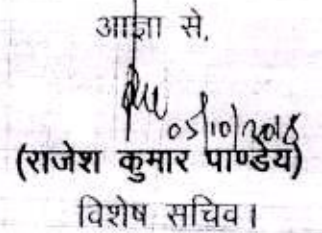 आज्ञा से,
05/10/2018
(राजेश कुमार पाण्डेय)
विशेष सचिव।